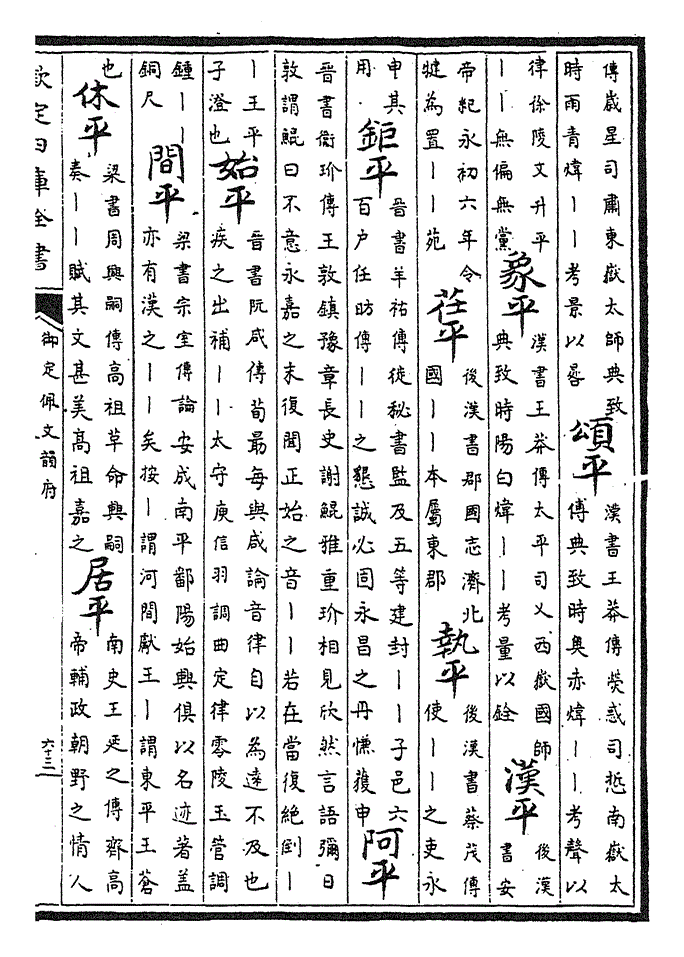 傳歲星司肅東嶽太師典致
時雨青煒丨丨考景以晷
頌平
漢書王莽傳熒惑司悊南嶽太
傅典致時奥赤煒丨丨考聲以
律徐陵文升平
丨丨無偏無黨
象平
漢書王莽傳太平司乂西嶽國師
典致時陽白煒丨丨考量以銓
漢平
後漢
書安
帝紀永初六年令
犍為置丨丨苑
茌平
後漢書郡國志濟北
國丨丨本屬東郡
執平
後漢書蔡茂傳
使丨丨之吏永
申其
用
鉅平
晉書羊祜傳徙秘書監及五等建封丨丨子邑六
百户任昉傳丨丨之懇誠必固永昌之丹慊獲申
阿平
晉書衛玠傳王敦鎮豫章長史謝鯤雅重玠相見欣然言語彌日
敦謂鯤曰不意永嘉之末復聞正始之音丨丨若在當復絕倒丨
丨王平
子澄也
始平
晉書阮咸傳荀朂每與咸論音律自以為遠不及也
疾之出補丨丨太守庾信羽調曲定律零陵玉管調
鍾丨丨
銅尺
間平
梁書宗室傳論安成南平鄱陽始興俱以名迹著蓋
亦有漢之丨丨矣按丨謂河間獻王丨謂東平王蒼
也
休平
梁書周興嗣傳高祖革命興嗣
奏丨丨賦其文甚美高祖嘉之
居平
南史王延之傳齊高
帝輔政朝野之情人
欽定四庫全書
御定佩文韻府
六十三